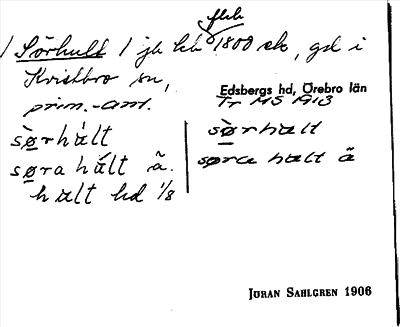 flk
/ Sörhult / jb kb 1800 ek, gd i
Kvistbro sn,
prim.-ant.
Edsbergs hd, Örebro län
Tr MS 1913
sø̀rhàlt
søra hált ä.
hält hd 1/8
sø̀rhalt
søra halt ä
JÖRAN SAHLGREN 1906